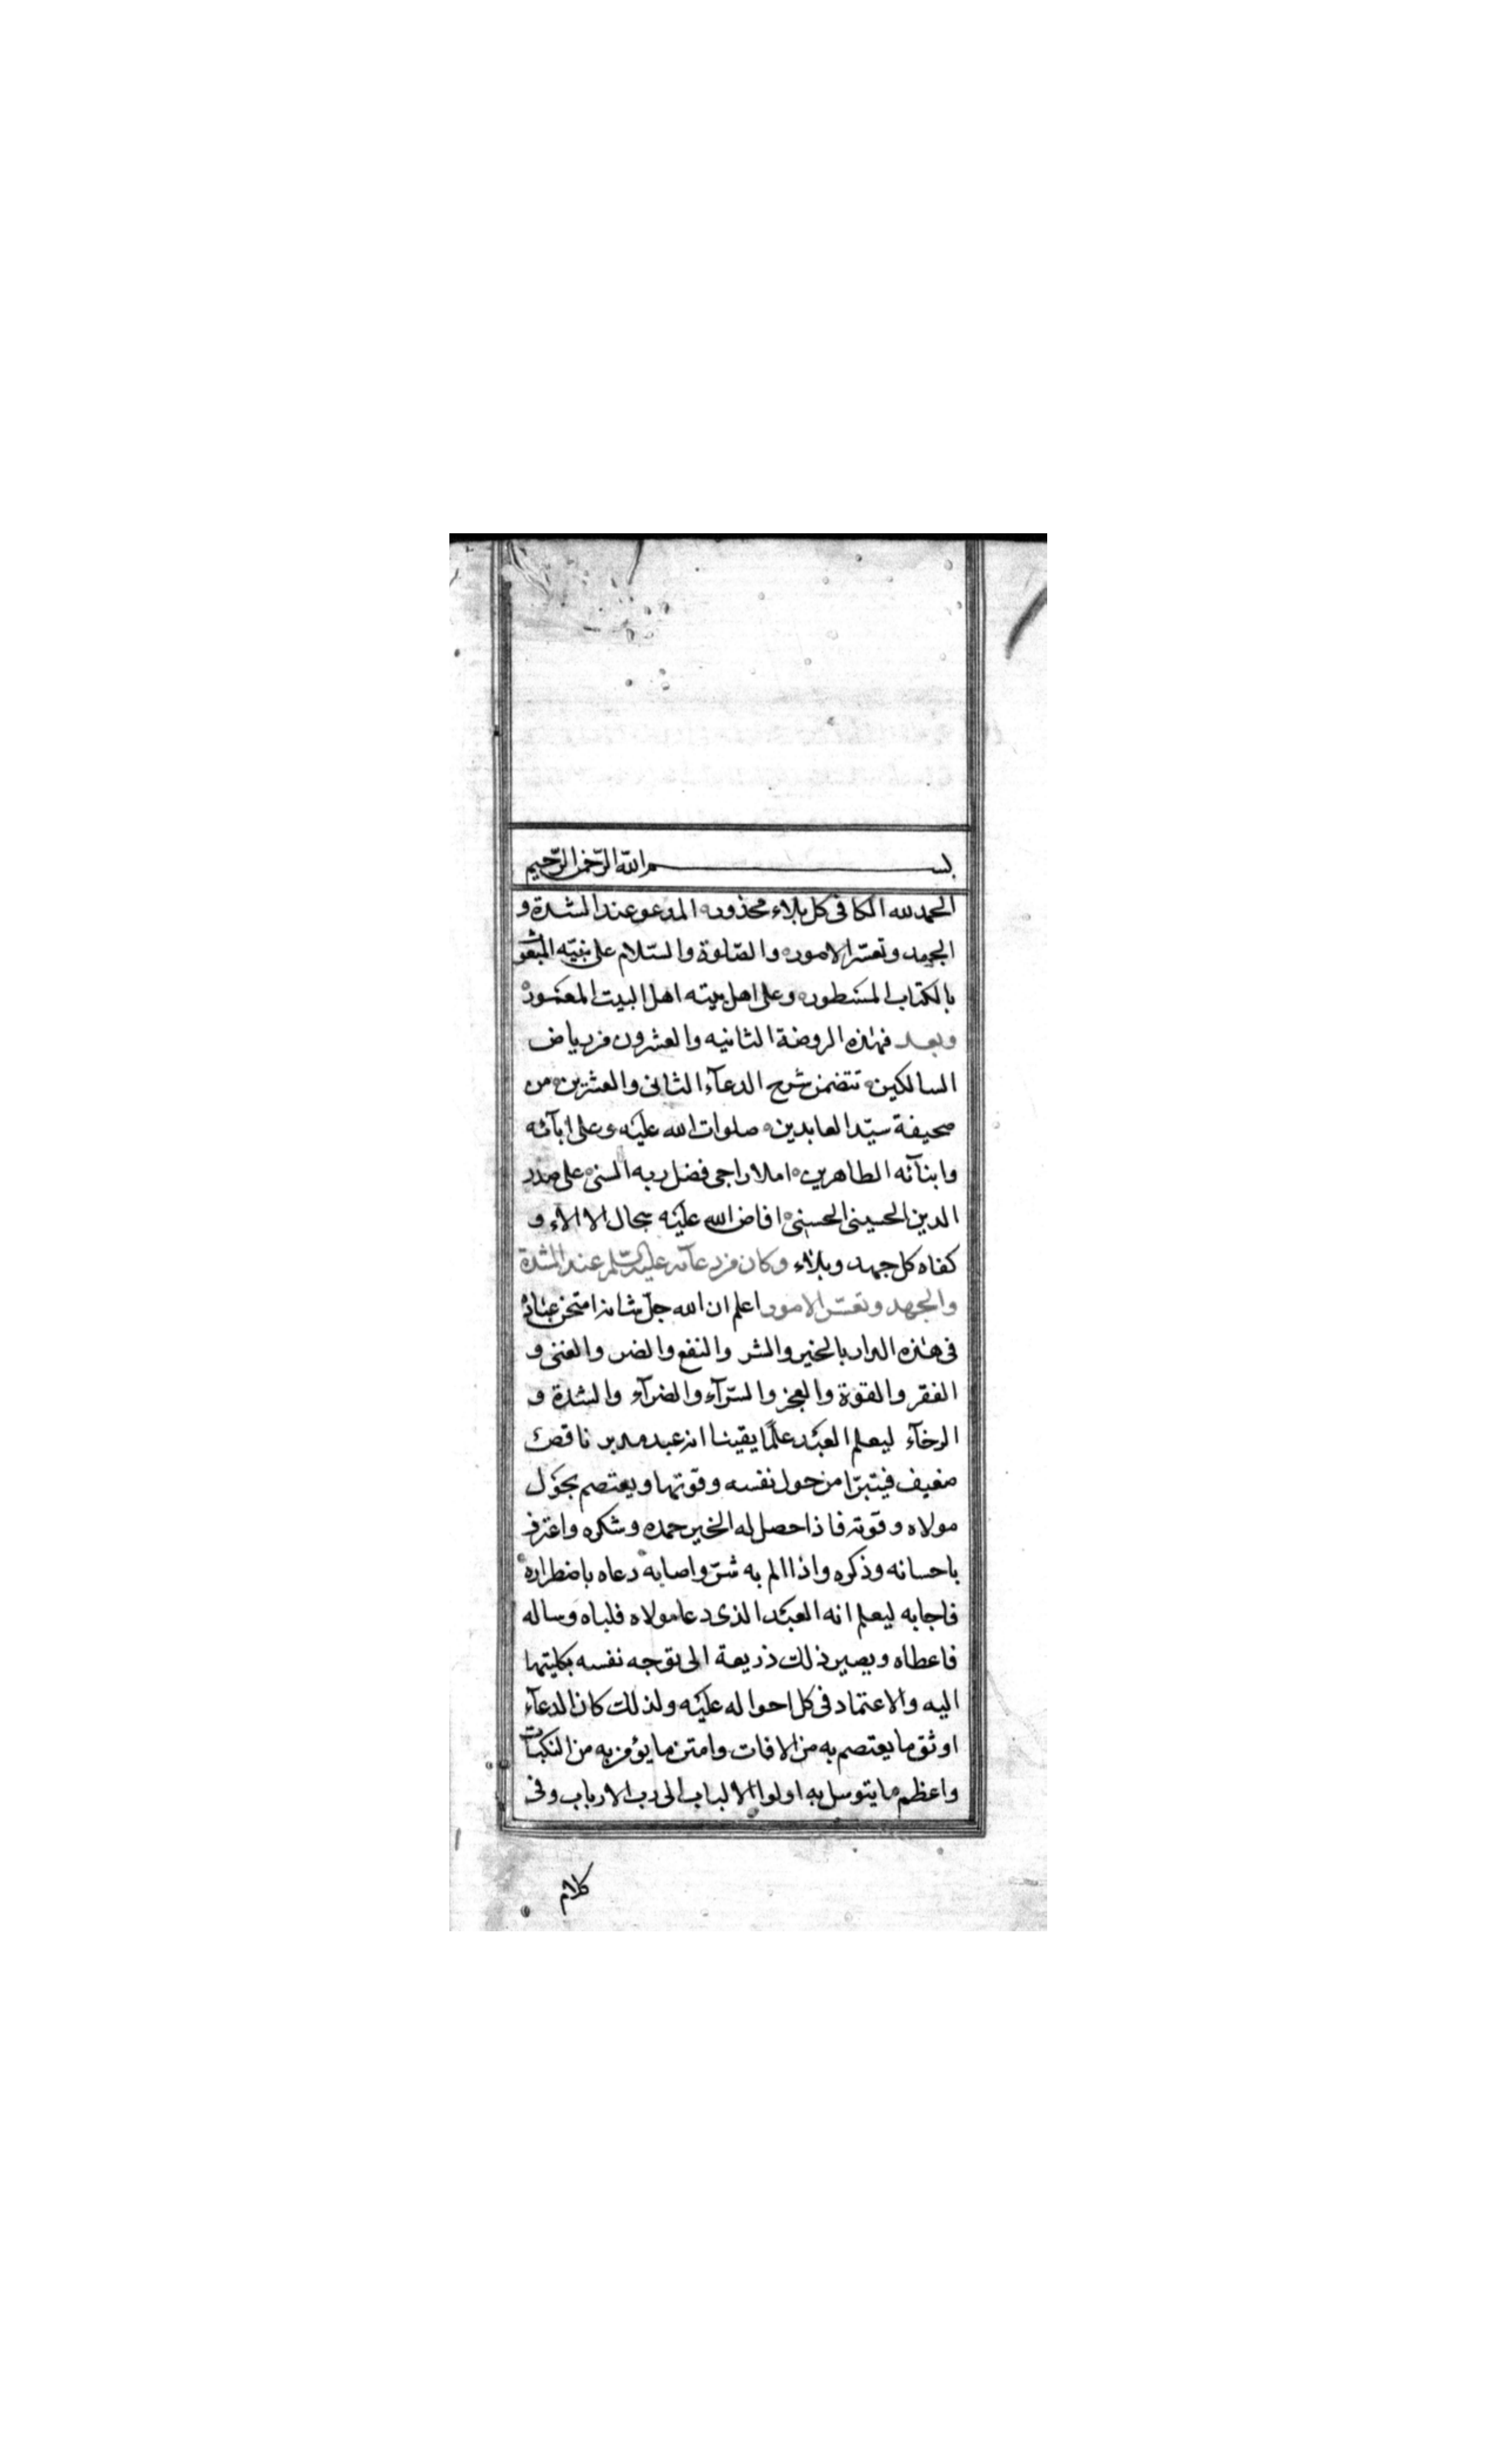 بسم الله الرحمن الرحيم
الحمد لله الكافى كل بلاء محذور، المدعو عند الشدة و
الجهد وتعسّر الامور، والصّلوة والسّلام على نبيّه المبعوث
بالكتاب المسطور، وعلى اهل بيته اهل البيت المعمور،
وبعد فهذه الروضة الثانيه والعشرون من رياض
السالكين، تتضمن شرح الدعآء الثانى والعشرين، من
صحيفة سيّد العابدين، صلوات الله عليه وعلى ابآئه
وابنآئه الطاهرين، املاء راجى فضل ربه السنى، على صدر
الدين الحسينى الحسنى، افاض الله عليه سجال الالاء و
كفاه كل جهد وبلاء، وكان من دعآئه عليه السّلم عند الشدة
والجهد وتعسّر الامور اعلم ان الله جلّ شانه امتحن عباده
فى هذه الدار بالخير والشر والنفع والضر والغنى و
الفقر والقوة والعجز والسّرآء والضرآء والشدة و
الرخآء ليعلم العبد علمًا يقينا انه عبد مدبر ناقص
ضعيف فيتبرّا من حول نفسه وقوّتها ويعتصم بحول
مولاه وقوّته فاذا حصل له الخير حمده وشكره واعترف
باحسانه وذكره واذا الم به شرّ واصابه دعاه باضطراره
فاجابه ليعلم انه العبد الذى دعا مولاه فلباه وساله
فاعطاه ويصير ذلك ذريعة الى توجه نفسه بكليتها
اليه والاعتماد فى كل احواله عليه ولذلك كان الدعآء
اوثق ما يعتصم به من الافات وامتن ما يؤمن به من النكبات
واعظم ما يتوسل به اولوا الالباب الى رب الارباب وفى
كلام